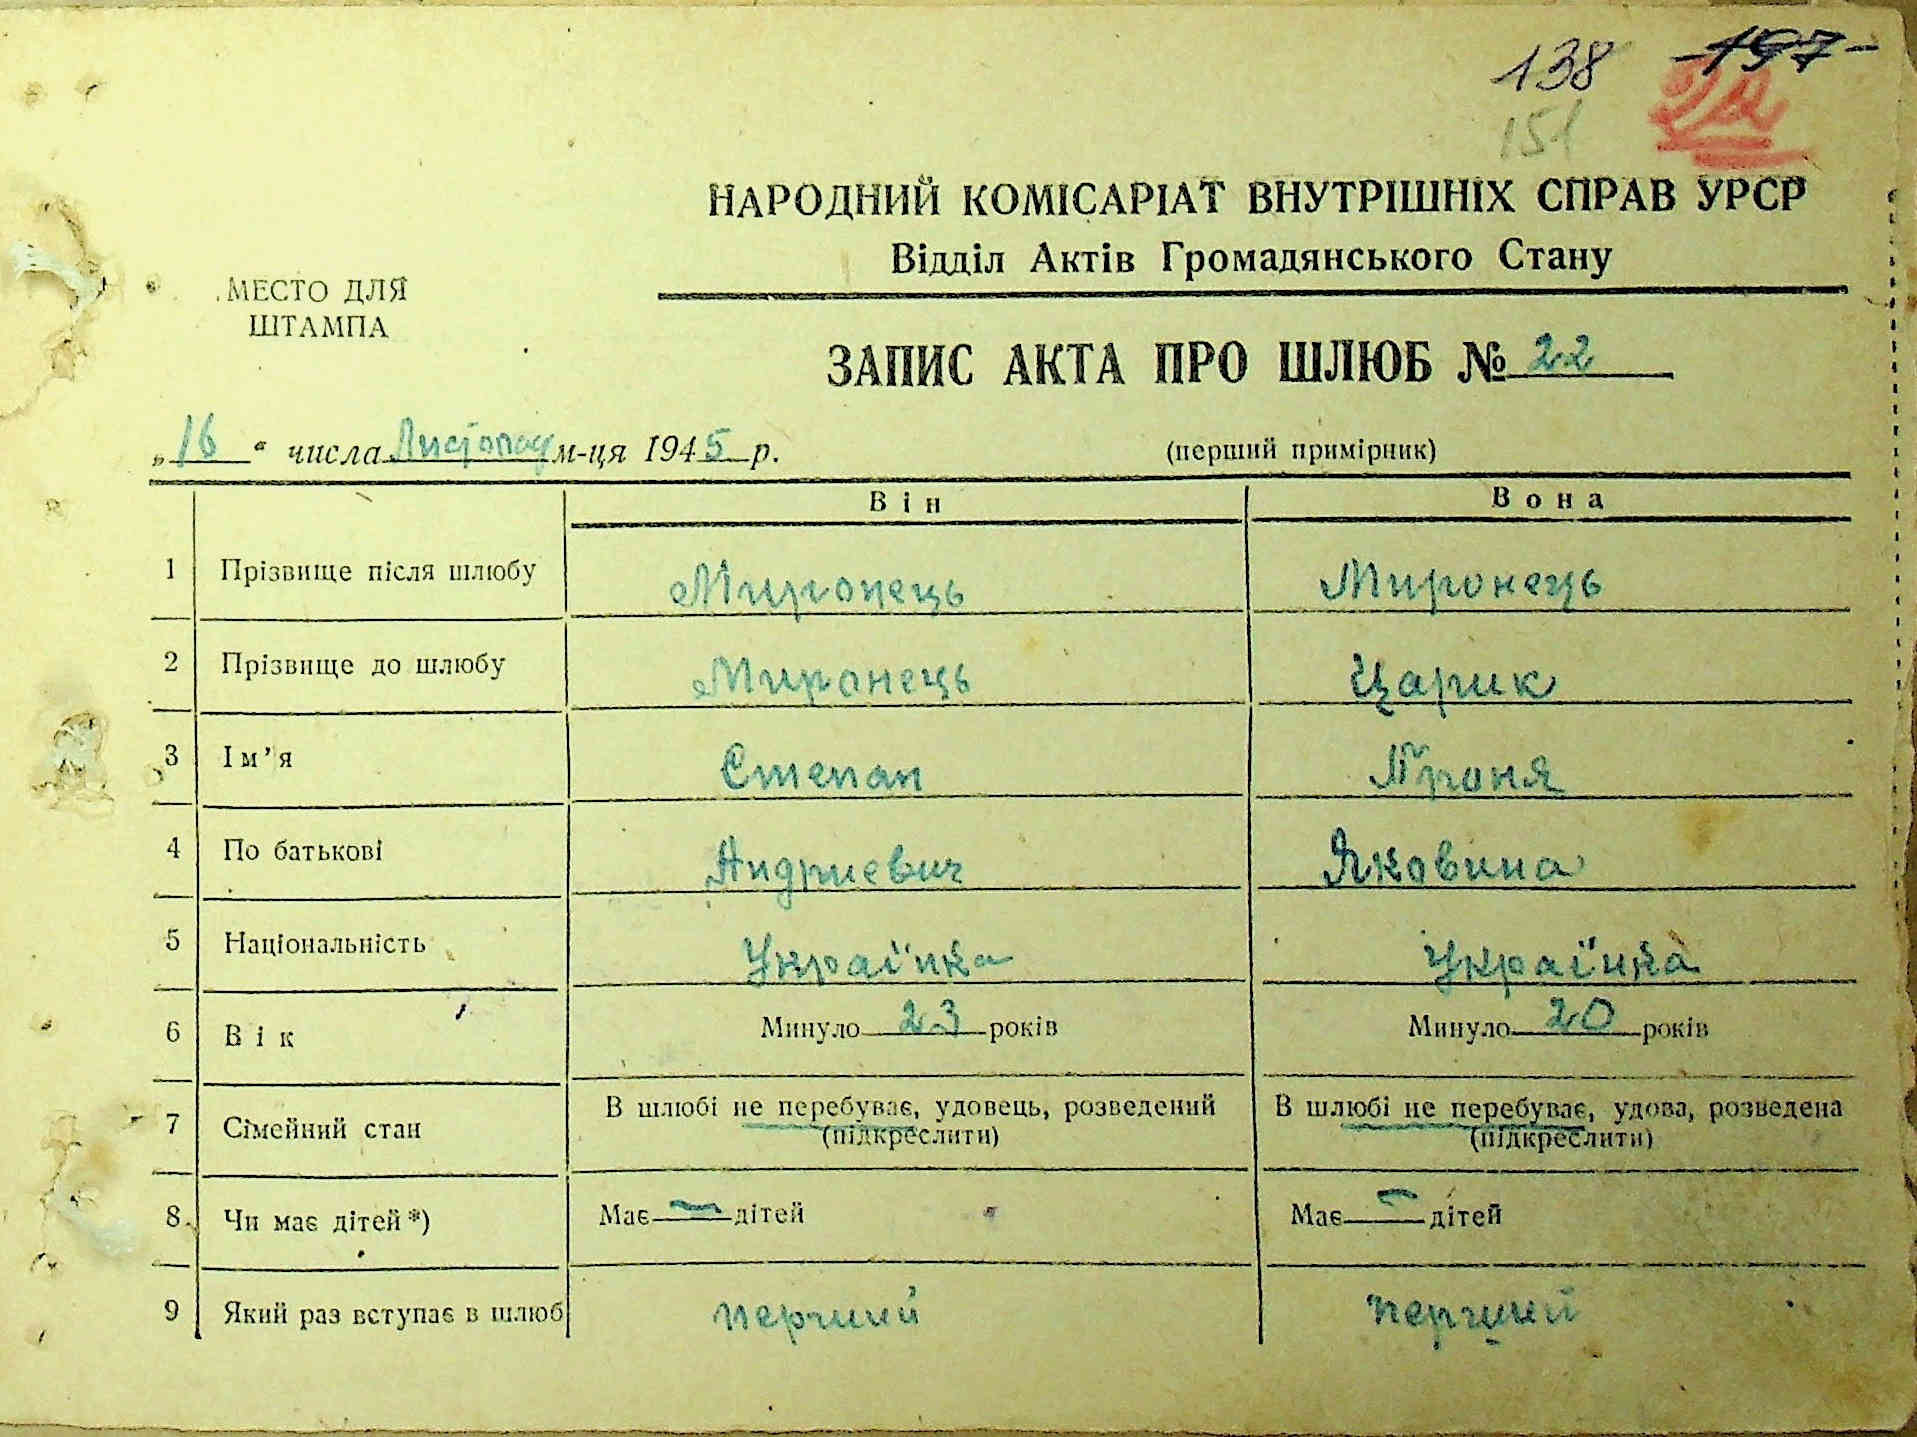 138 197
151
НАРОДНИЙ КОМІСАРІАТ ВНУТРІШНІХ СПРАВ УРСР
Відділ Актів Громадянського Стану
МЕСТО ДЛЯ
ШТАМПА
ЗАПИС АКТА ПРО ШЛЮБ № 22
„16“ числа Листопад м-ця 1945 р. (перший примірник)
Він Вона
1 Прізвище після шлюбу Миронець Миронець
2 Прізвище до шлюбу Миронець Царик
3 Ім’я Степан Проня
4 По батькові Андриевич Яковина
5 Національність Українка Українка
6 Вік Минуло 23 років Минуло 20 років
7 Сімейний стан В шлюбі не перебуває, удовець, розведений В шлюбі не перебуває, удова, розведена
(підкреслити) (підкреслити)
8 Чи має дітей*) Має — дітей Має — дітей
9 Який раз вступає в шлюб перчий перчий